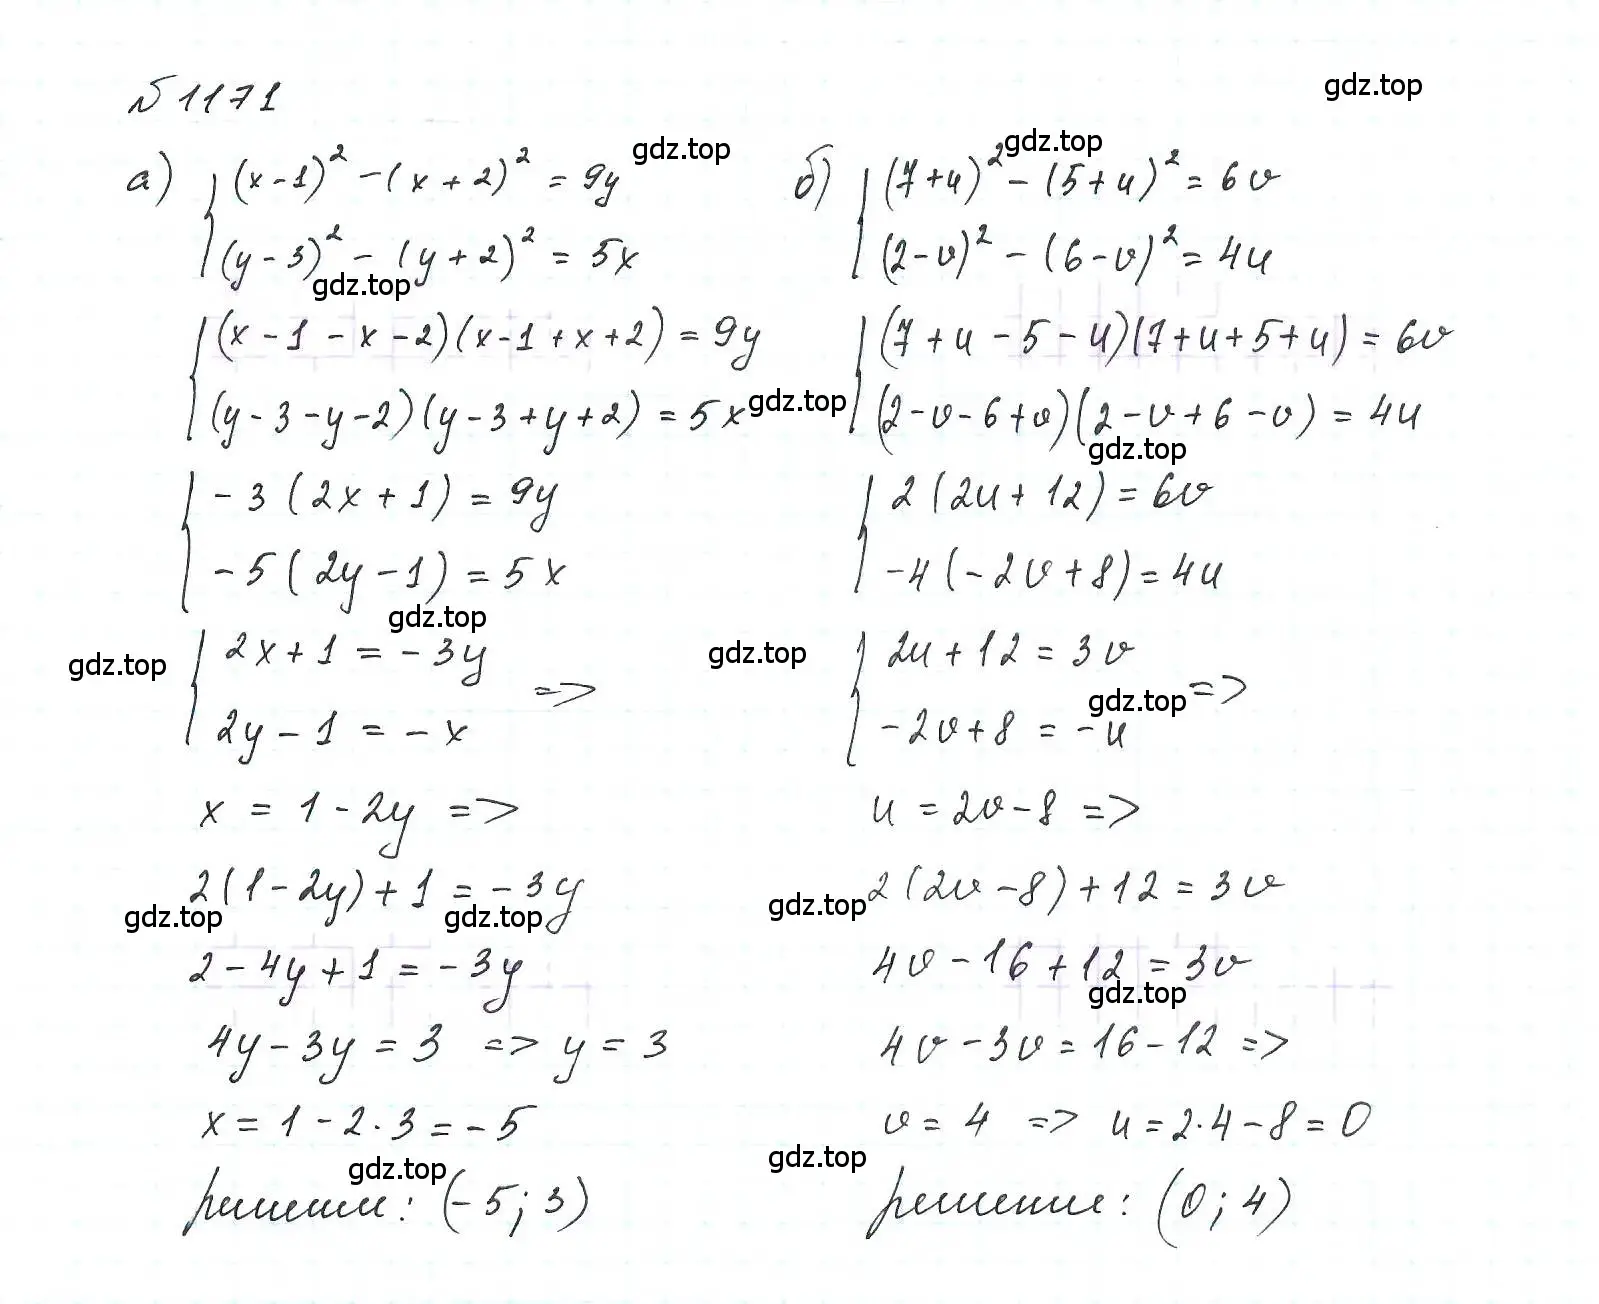 № 1171
gdz.top
а) { (x-1)² - (x+2)² = 9y
gdz.top
(y-3)² - (y+2)² = 5x
gdz.top
{ (x-1-x-2)(x-1+x+2) = 9y
(y-3-y-2)(y-3+y+2) = 5x
gdz.top
{ -3(2x+1) = 9y
-5(2y-1) = 5x
gdz.top
gdz.top
{ 2x+1 = -3y
2y-1 = -x =>
x = 1-2y =>
2(1-2y)+1 = -3y
gdz.top
gdz.top
2-4y+1 = -3y
4y-3y = 3 => y = 3
x = 1-2·3 = -5
gdz.top
решение: (-5; 3)
б) { (7+u)² - (5+u)² = 6v
gdz.top
(2-v)² - (6-v)² = 4u
{ (7+u-5-u)(7+u+5+u) = 6v
(2-v-6+v)(2-v+6-v) = 4u
gdz.top
{ 2(2u+12) = 6v
-4(-2v+8) = 4u
gdz.top
{ 2u+12 = 3v
-2v+8 = -u =>
gdz.top
u = 2v-8 =>
2(2v-8)+12 = 3v
gdz.top
4v-16+12 = 3v
gdz.top
4v-3v = 16-12 =>
v = 4 => u = 2·4-8 = 0
gdz.top
решение: (0; 4)